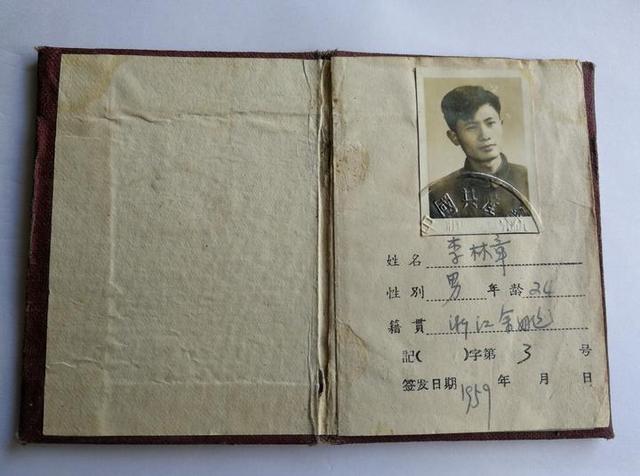 中國共產
姓名 李林章
性别 男 年龄 24
籍贯 浙江余姚
記( )字第 3 号
签发日期 1959 年 月 日